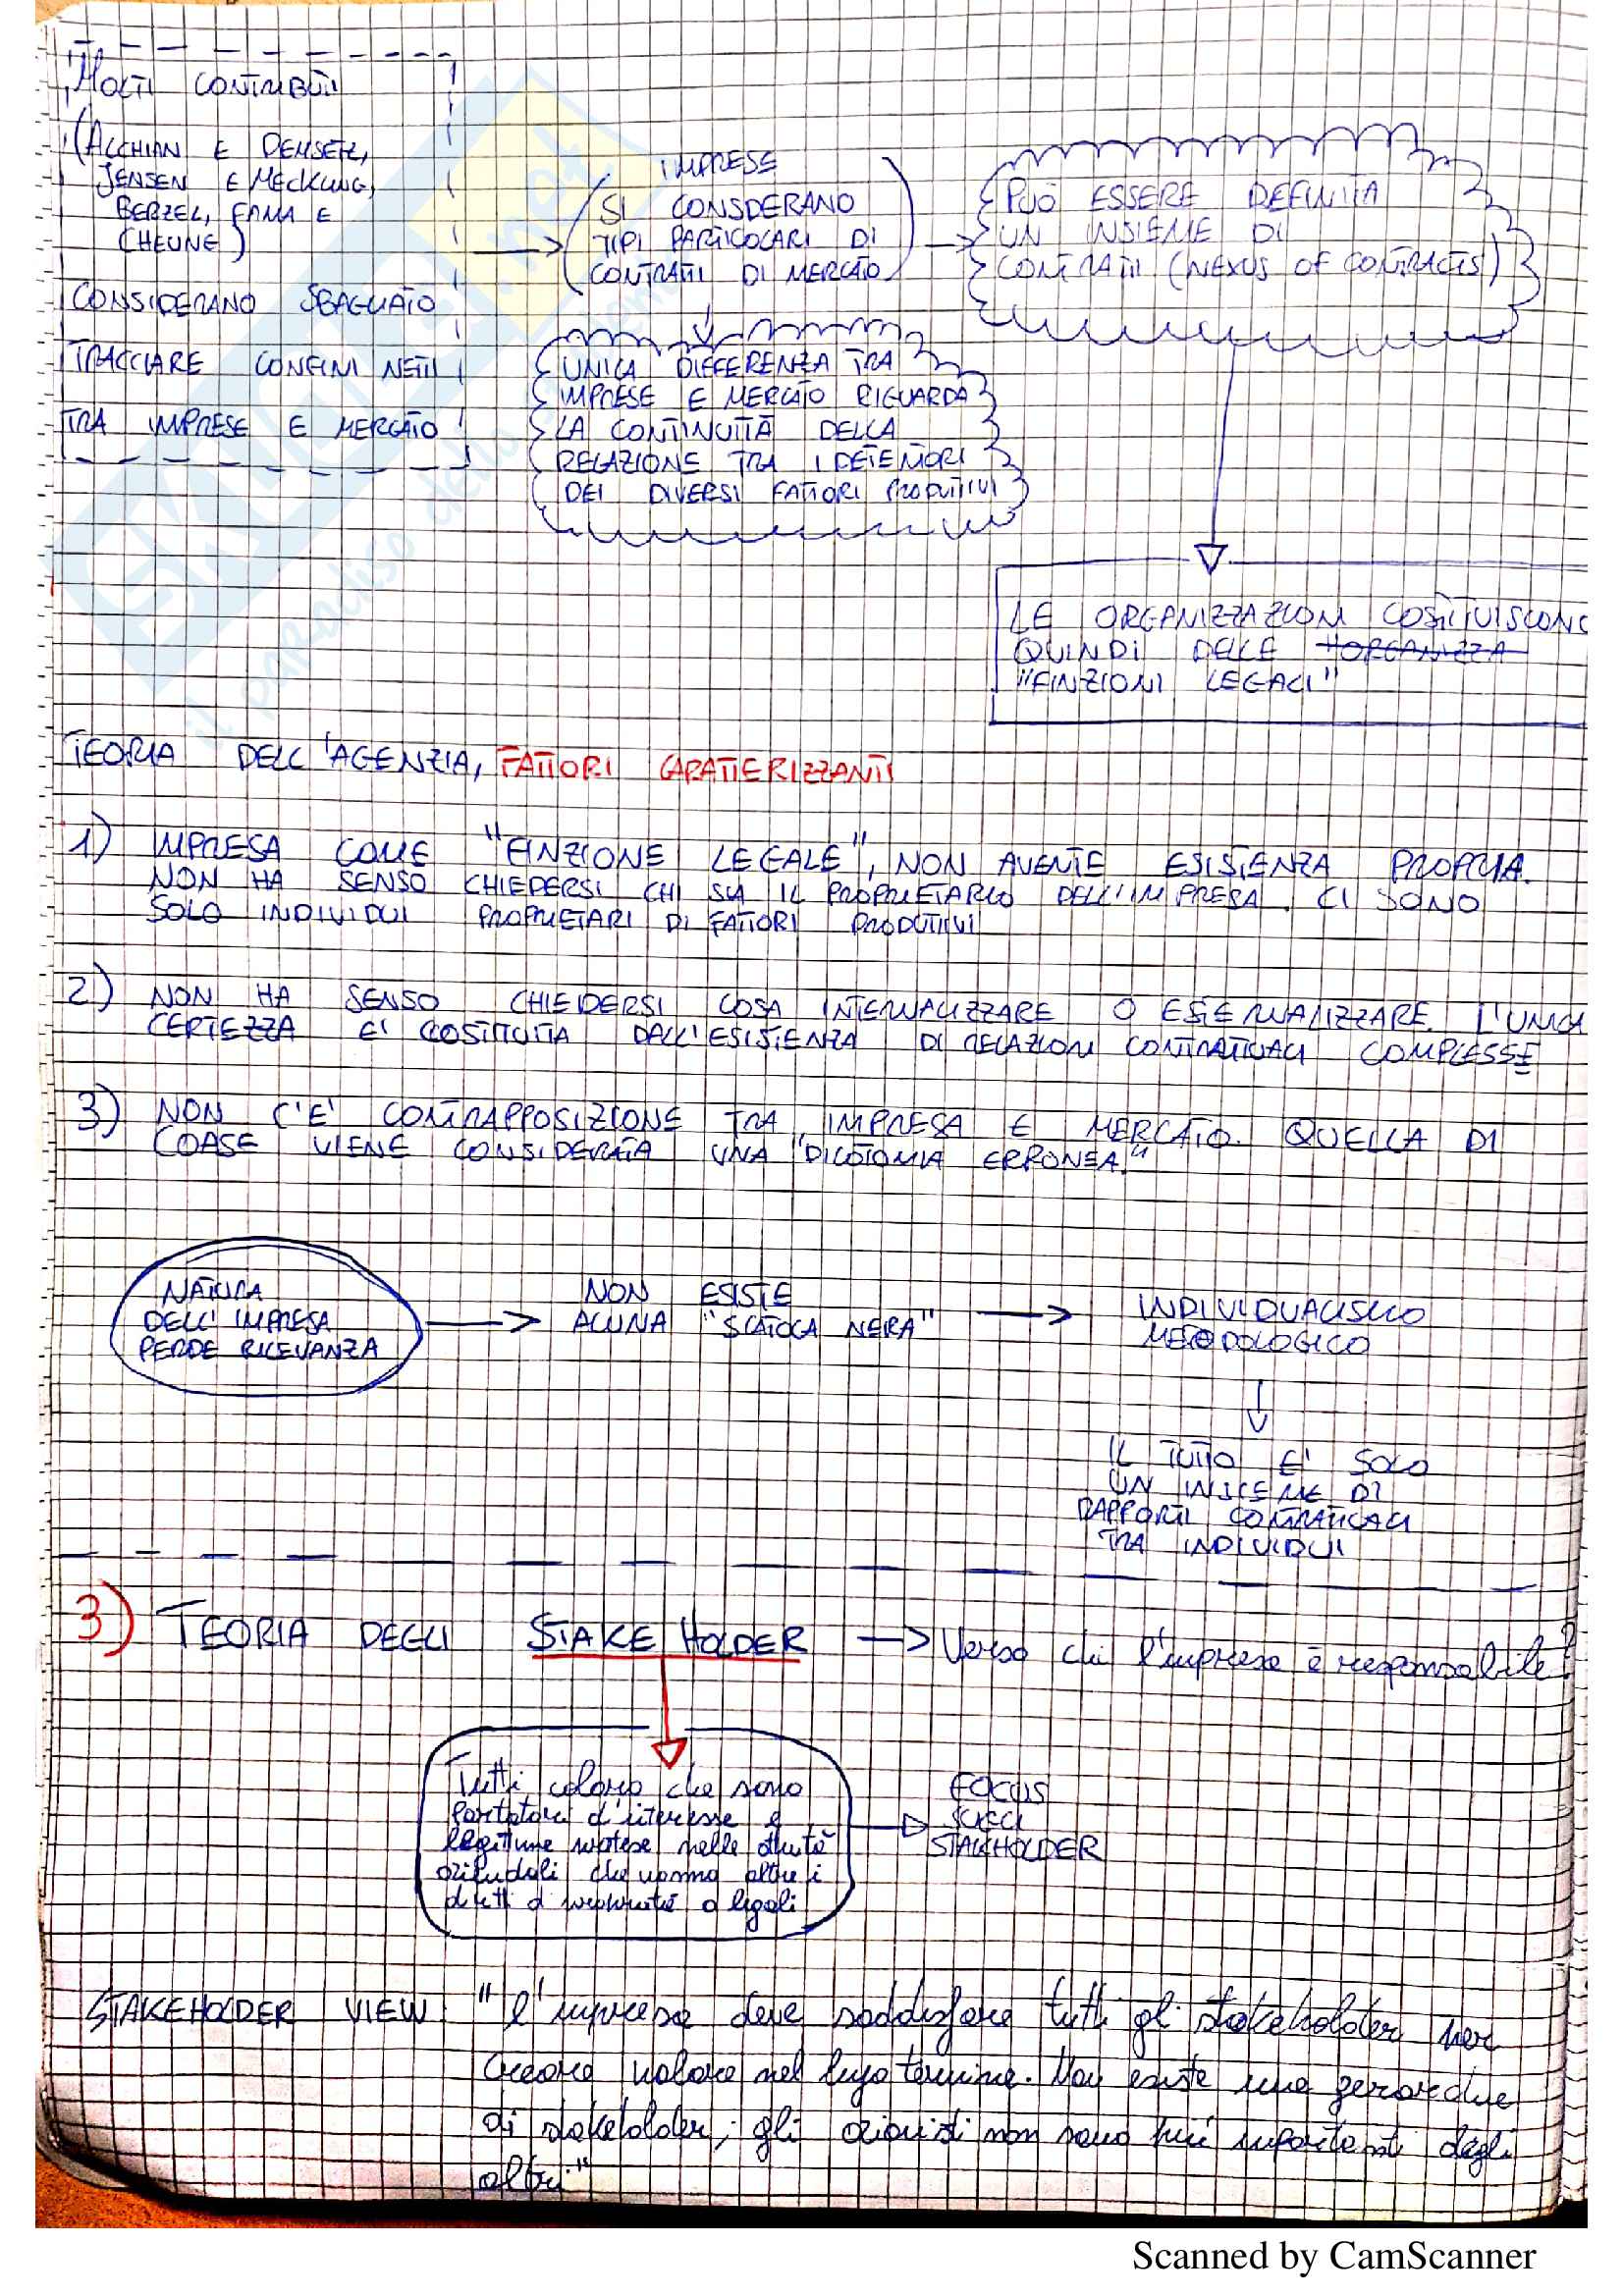 MOLTI CONTRIBUTI
(ALCHIAN E DEMSETZ,
JENSEN E MECKLING,
BERZEL, FAMA E
CHEUNE)
CONSIDERANO SBAGLIATO
TRACCIARE CONFINI NETTI
TRA IMPRESE E MERCATO
IMPRESE
SI CONSIDERANO
TIPI PARTICOLARI DI
CONTRATTI DI MERCATO
PUÒ ESSERE DEFINITA
UN INSIEME DI
CONTRATTI (NEXUS OF CONTRACTS)
UNICA DIFFERENZA TRA
IMPRESE E MERCATO RIGUARDA
LA CONTINUITÀ DELLA
RELAZIONE TRA I DETENTORI
DEI DIVERSI FATTORI PRODUTTIVI
LE ORGANIZZAZIONI COSTITUISCONO
QUINDI DELLE ORGANIZZA
"FINZIONI LEGALI"
TEORIA DELL'AGENZIA, FATTORI CARATTERIZZANTI
1) IMPRESA COME "FINZIONE LEGALE", NON AVENTE ESISTENZA PROPRIA.
NON HA SENSO CHIEDERSI CHI SIA IL PROPRIETARIO DELL'IMPRESA. CI SONO
SOLO INDIVIDUI PROPRIETARI DI FATTORI PRODUTTIVI
2) NON HA SENSO CHIEDERSI COSA INTERNALIZZARE O ESTERNALIZZARE. L'UNICA
CERTEZZA E' COSTITUITA DALL'ESISTENZA DI RELAZIONI CONTRATTUALI COMPLESSE
3) NON C'E' CONTRAPPOSIZIONE TRA IMPRESA E MERCATO. QUELLA DI
COASE VIENE CONSIDERATA UNA "DICOTOMIA ERRONEA."
NATURA
DELL'IMPRESA
PERDE RILEVANZA
NON ESISTE
ALCUNA "SCATOLA NERA"
INDIVIDUALISMO
METODOLOGICO
IL TUTTO E' SOLO
UN INSIEME DI
RAPPORTI CONTRATTUALI
TRA INDIVIDUI
3) TEORIA DEGLI STAKE HOLDER → Verso chi l'impresa è responsabile?
Tutti coloro che sono
portatori d'interesse e
legittime pretese nelle attività
aziendali che vanno oltre i
diritti di proprietà o legali
FOCUS
SUGLI
STAKEHOLDER
STAKEHOLDER VIEW: "l'impresa deve soddisfare tutti gli stakeholder per
creare valore nel lungo termine. Non esiste una gerarchia
di stakeholder, gli azionisti non sono più importanti degli
altri"
SKUOLA.net
il paradiso dello studente
Scanned by CamScanner